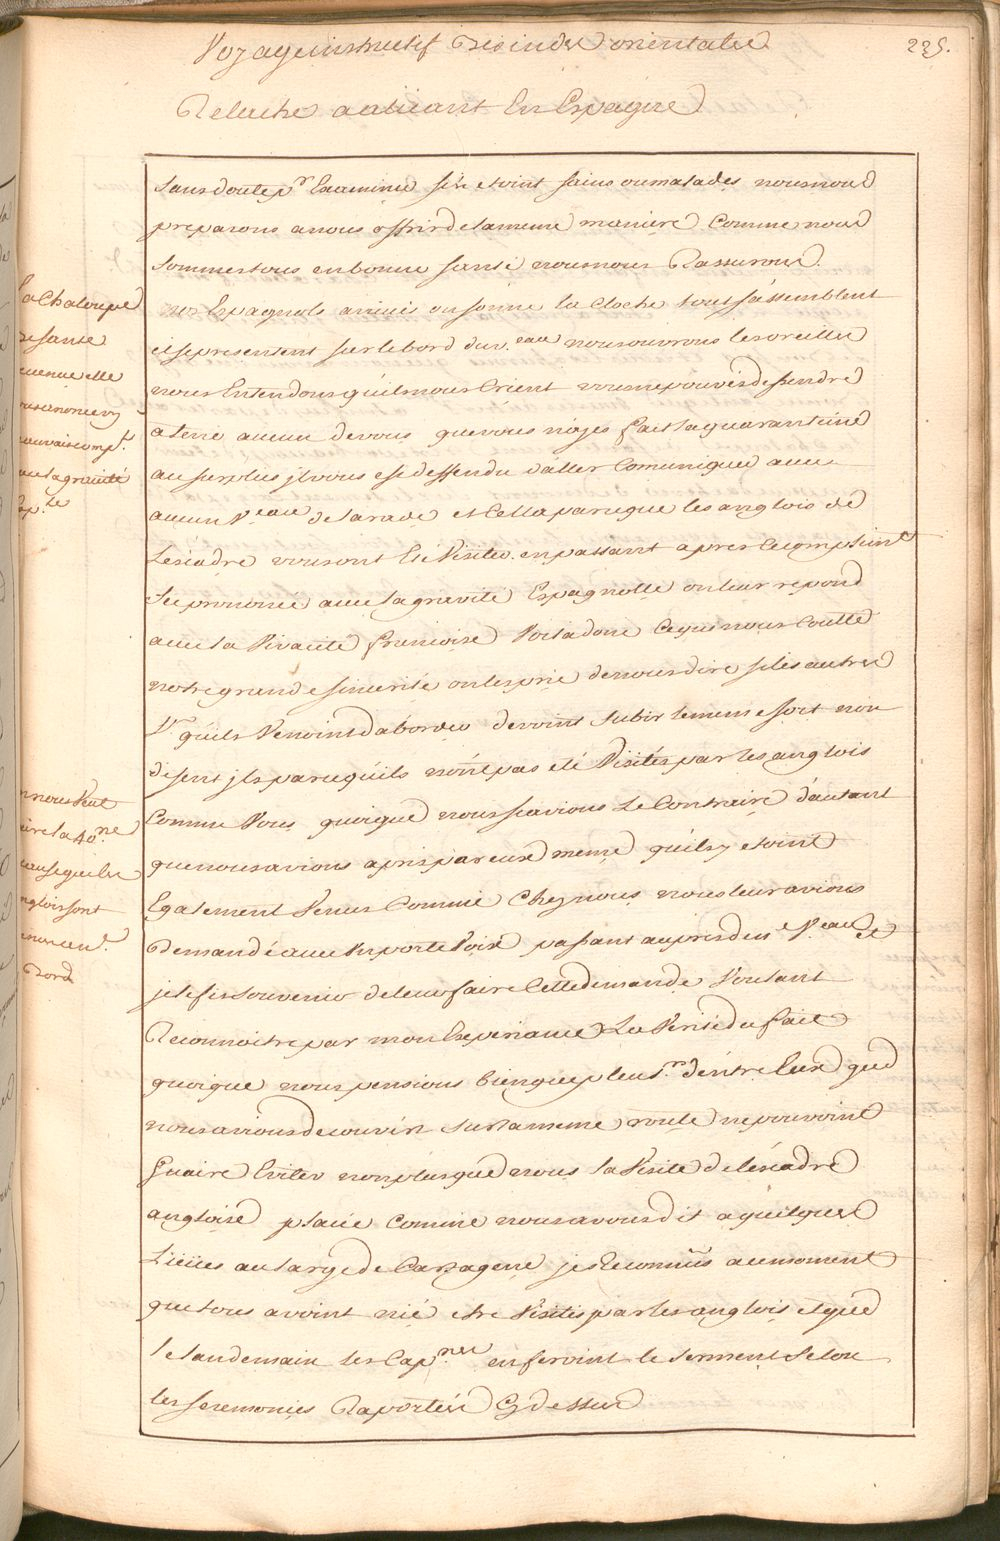 Voyage instructif Des indes orientales
235.
Relache a alicant En Espagne
sans doute pr Examiner s'ils etoint sains ou malades nous nous
preparons a nous offrir de la meme maniere Comme nous
sommes tous en bonne santé nous nous Rassurons.
La Chaloupe
de santé
venue elle
nous anonce un
mauvais compt.
avec la gravité
Esp.le
nos Espagnols arrivés on sonne la Cloche tout s'assemblent
et se presentent sur le bord du v.eau nous ouvrons les oreilles
nous Entendons qu'ils nous Crient vous ne pouvés dessendre
a terre aucun de vous que vous n'ajes fait la quarantaine
au surplus il vous est deffendu d'aller Comuniquer avec
aucun V.eau de la rade et Cella parceque les anglois de
L'escadre vous ont Eté Visiter en passant apres Ce compliment
Si prononcé avec la gravité Espagnolle on leur repond
avec la Vivacité francoise Voila donc Ce qui nous Coutte
notre grande sincerité on les prie de nous dire si les autres
V.x qu'ils Venoint d'aborder devoint subir le meme sort non
disent ils parcequ'ils n'ont pas eté Visités par les anglois
Comme Vous quoique nous scavions Le Contraire d'autant
que nous avions apris par eux meme qu'ils y etoint
Egalement Venus Comme Chez nous nous leur avions
Demandé avec Un porte Voix passant aupres d'un V.eau et
je le fis souvenir de leur faire Cette demande Voulant
Reconnoitre par mon Experiance La Verité du fait
quoique nous pensions bien que pleus.rs d'entre Eux que
nous avions decouvert sur la meme route ne pouvoint
Guaire Eviter non plus que nous la Visite de l'escadre
angloise placée comme nous avons dit a quelques
Lieües au large de Cartagene je Reconnus au moment
que tous avoint nié etre Visités par les anglois et que
le Landemain les Cap.nes en feroint le serment selon
les seremonies Raportées Cy dessus
on nous Veut
faire la 40.ne
a cause que les
anglois sont
venus en n.
Bord